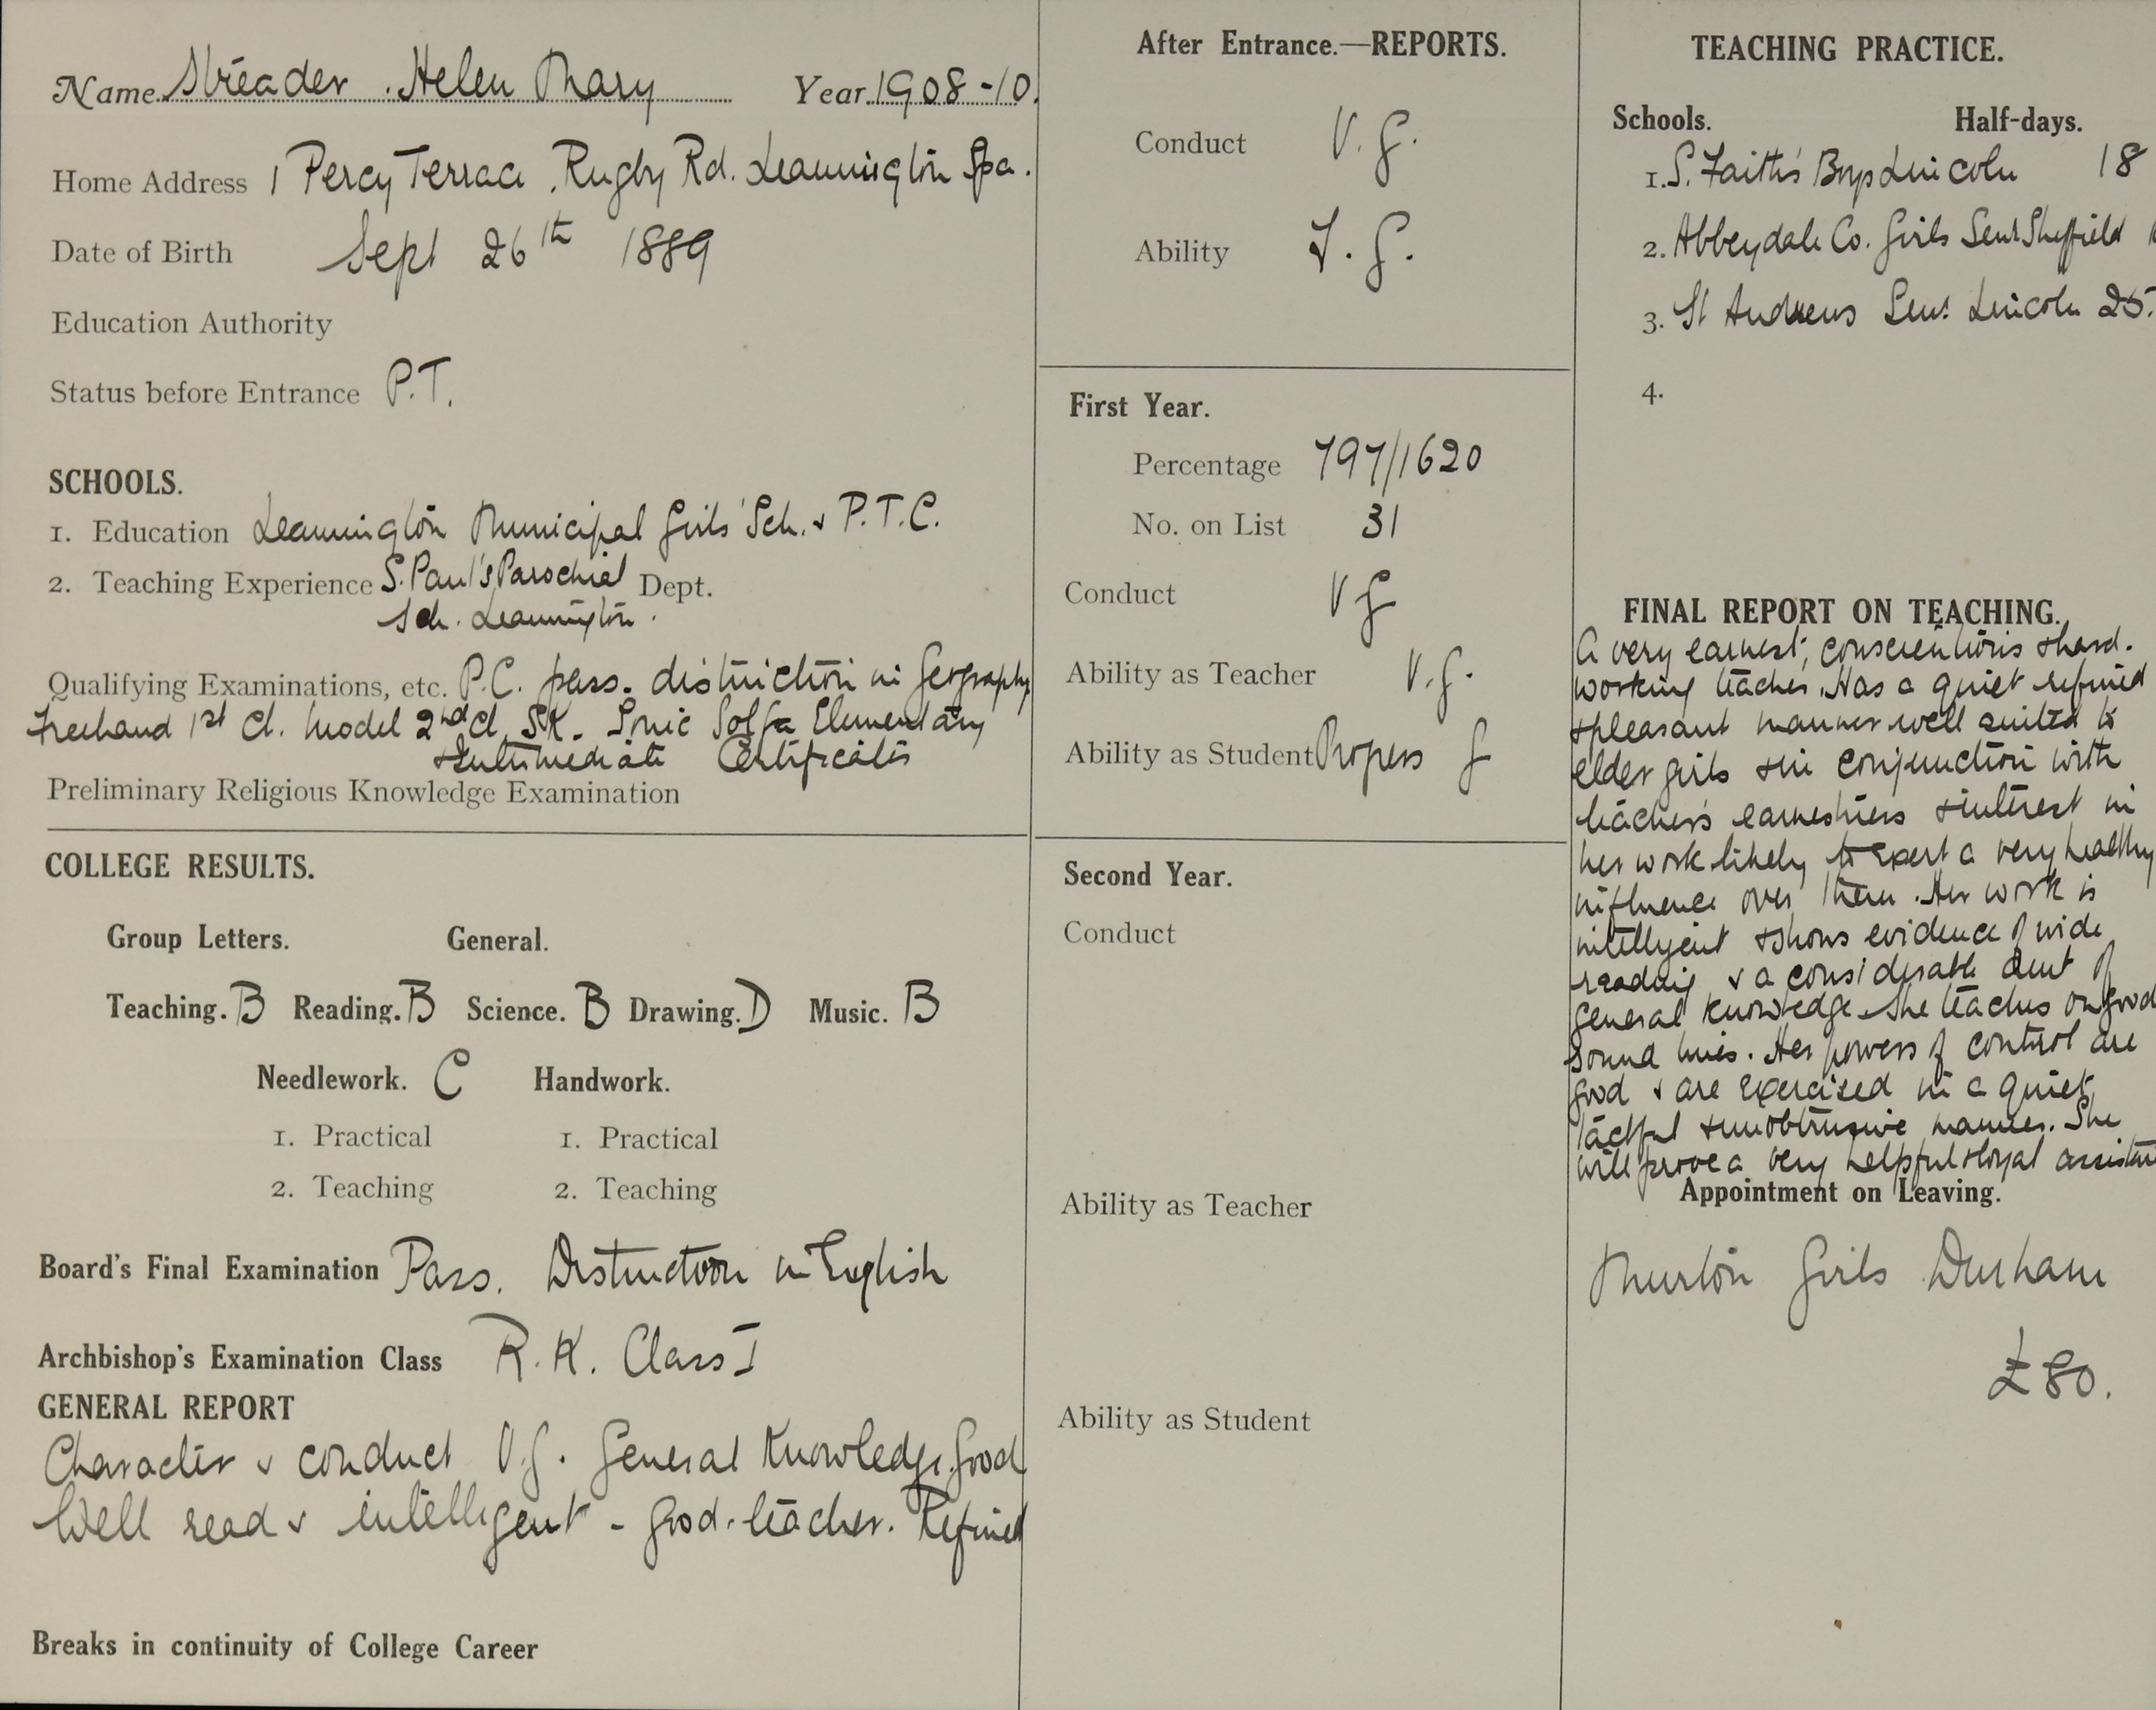 Name Streader . Helen Mary Year 1908-10.
Home Address 1 Percy Terrace . Rugby Rd. Leamington Spa.
Date of Birth Sept 26th 1889
Education Authority
Status before Entrance P.T.
SCHOOLS.
1. Education Leamington Municipal Girls' Sch. & P.T.C.
2. Teaching Experience S. Paul's Parochial Dept.
Sch. Leamington.
Qualifying Examinations, etc. P.C. pass. distinction in Geography
Freehand 1st Cl. Model 2nd Cl. S.K. Tonic Solfa Elementary
& Intermediate Certificates
Preliminary Religious Knowledge Examination
COLLEGE RESULTS.
Group Letters. General.
Teaching. B Reading. B Science. B Drawing. D Music. B
Needlework. C Handwork.
1. Practical 1. Practical
2. Teaching 2. Teaching
Board's Final Examination Pass. Distinction in English
Archbishop's Examination Class R.K. Class I
GENERAL REPORT
Character & conduct V.G. General Knowledge. Good
Well read & intelligent - Good teacher. Refined
Breaks in continuity of College Career
After Entrance.—REPORTS.
Conduct V.G.
Ability F.G.
First Year.
Percentage 797/1620
No. on List 31
Conduct VG
Ability as Teacher V.G.
Ability as Student Progress G
Second Year.
Conduct
Ability as Teacher
Ability as Student
TEACHING PRACTICE.
Schools. Half-days.
1. S. Faith's Boys Lincoln 18
2. Abbeydale Co. Girls Senr Sheffield
3. St Andrews Senr Lincoln 25.
4.
FINAL REPORT ON TEACHING.
A very earnest, conscientious & hard-
working teacher. Has a quiet refined
& pleasant manner well suited to
elder girls & in conjunction with
teacher's earnestness & interest in
her work likely to exert a very healthy
influence over them. Her work is
intelligent & shows evidence of wide
reading & a considerable amt of
general knowledge. She teaches on good
sound lines. Her powers of control are
good & are exercised in a quiet
tactful & unobtrusive manner. She
will prove a very helpful & loyal assistant
Appointment on Leaving.
Murton Girls Durham
£80.